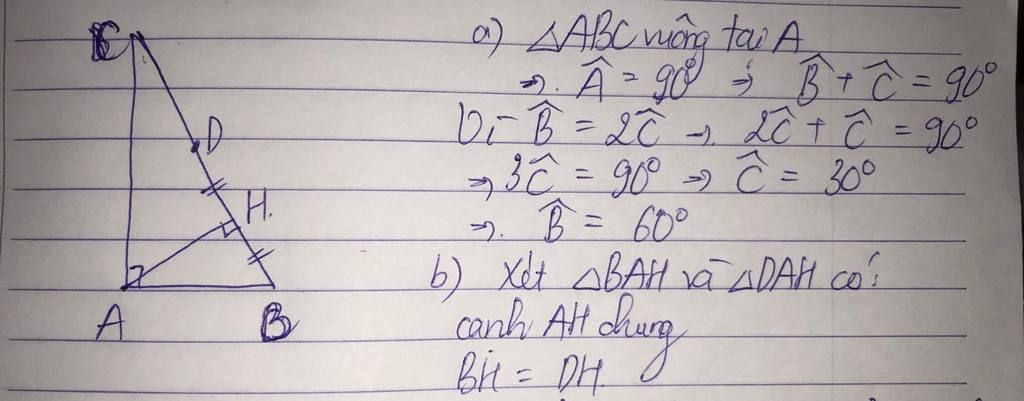 C
D
H.
A
B
a) △ABC vuông tại A
⇒. Â = 90° ⇒ B̂ + Ĉ = 90°
Vì B̂ = 2Ĉ ⇒. 2Ĉ + Ĉ = 90°
⇒ 3Ĉ = 90° ⇒ Ĉ = 30°
⇒. B̂ = 60°
b) Xét △BAH và △DAH có:
cạnh AH chung
BH = DH.